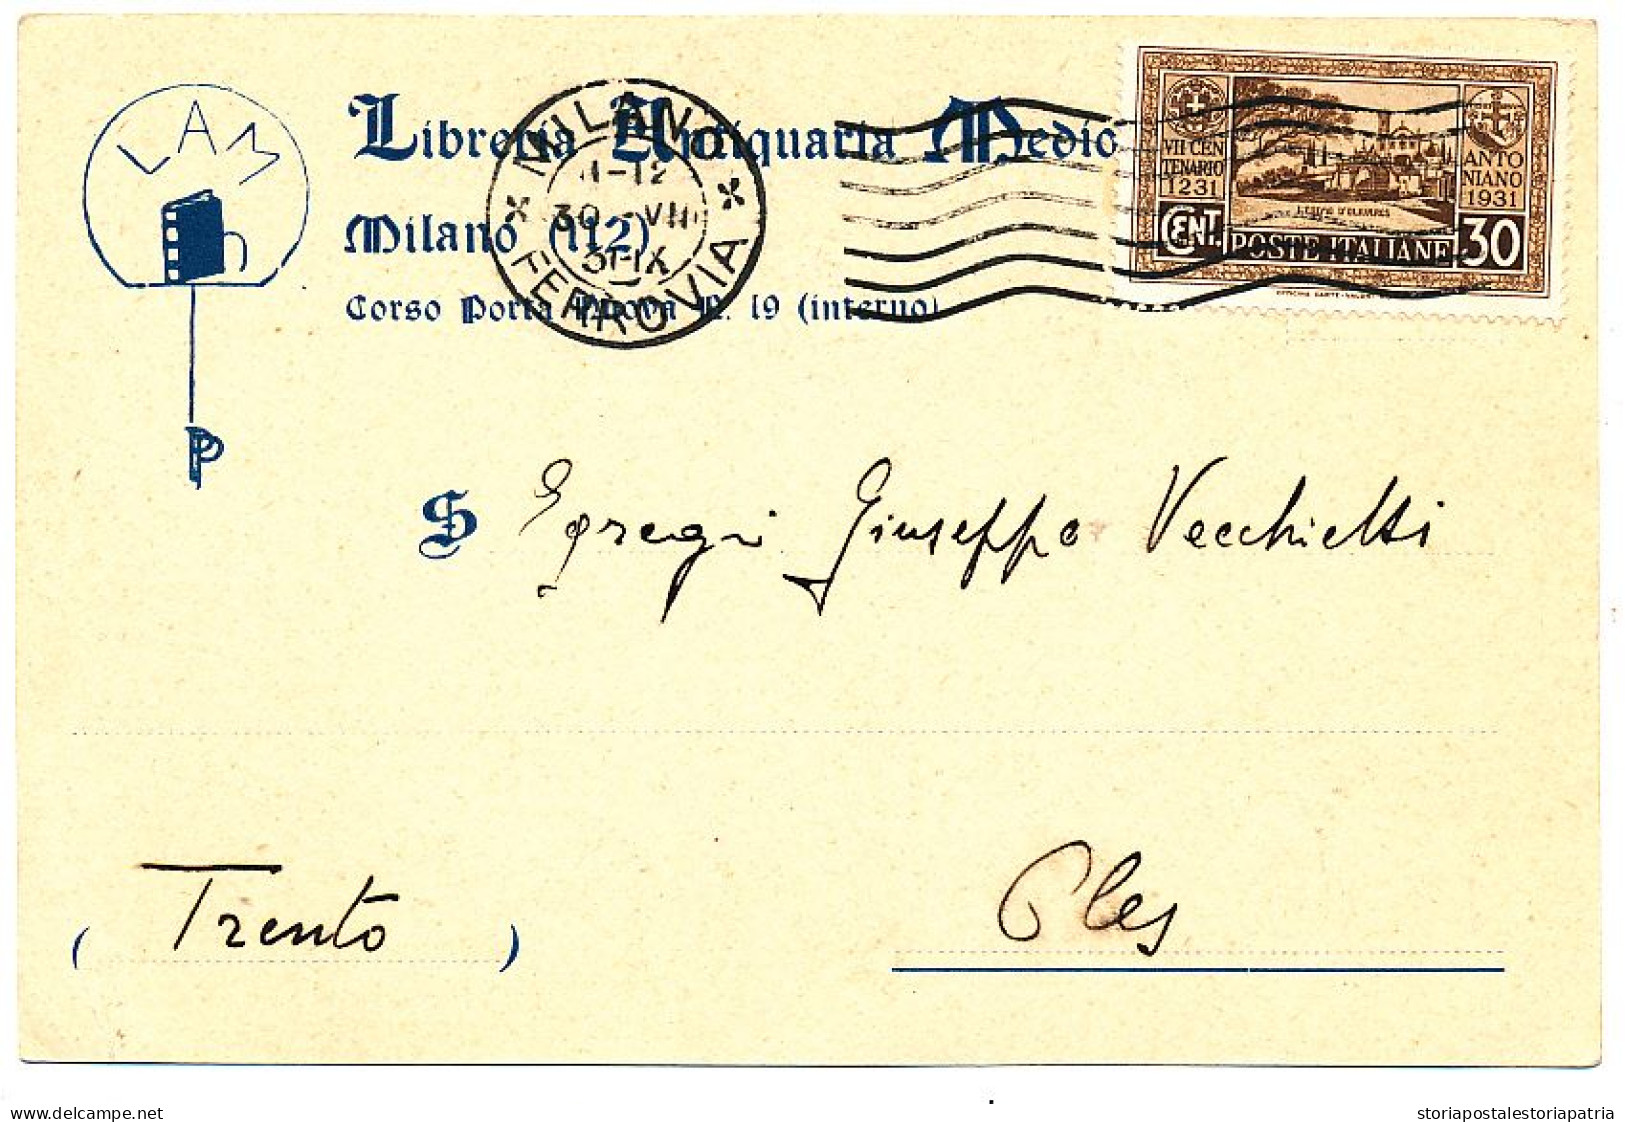 LAM
Libreria Antiquaria Medio
Milano (112)
Corso Porta Nuova N. 19 (interno)
P
MILANO
11-12
30 · VII
31 · IX
FERROVIA
VII CEN
TENARIO
1231
ANTO
NIANO
1931
CENT. POSTE ITALIANE 30
S Egregi Giuseppe Vecchietti
( Trento )
Cles
delcampe.net
storiapostalestoriapatria